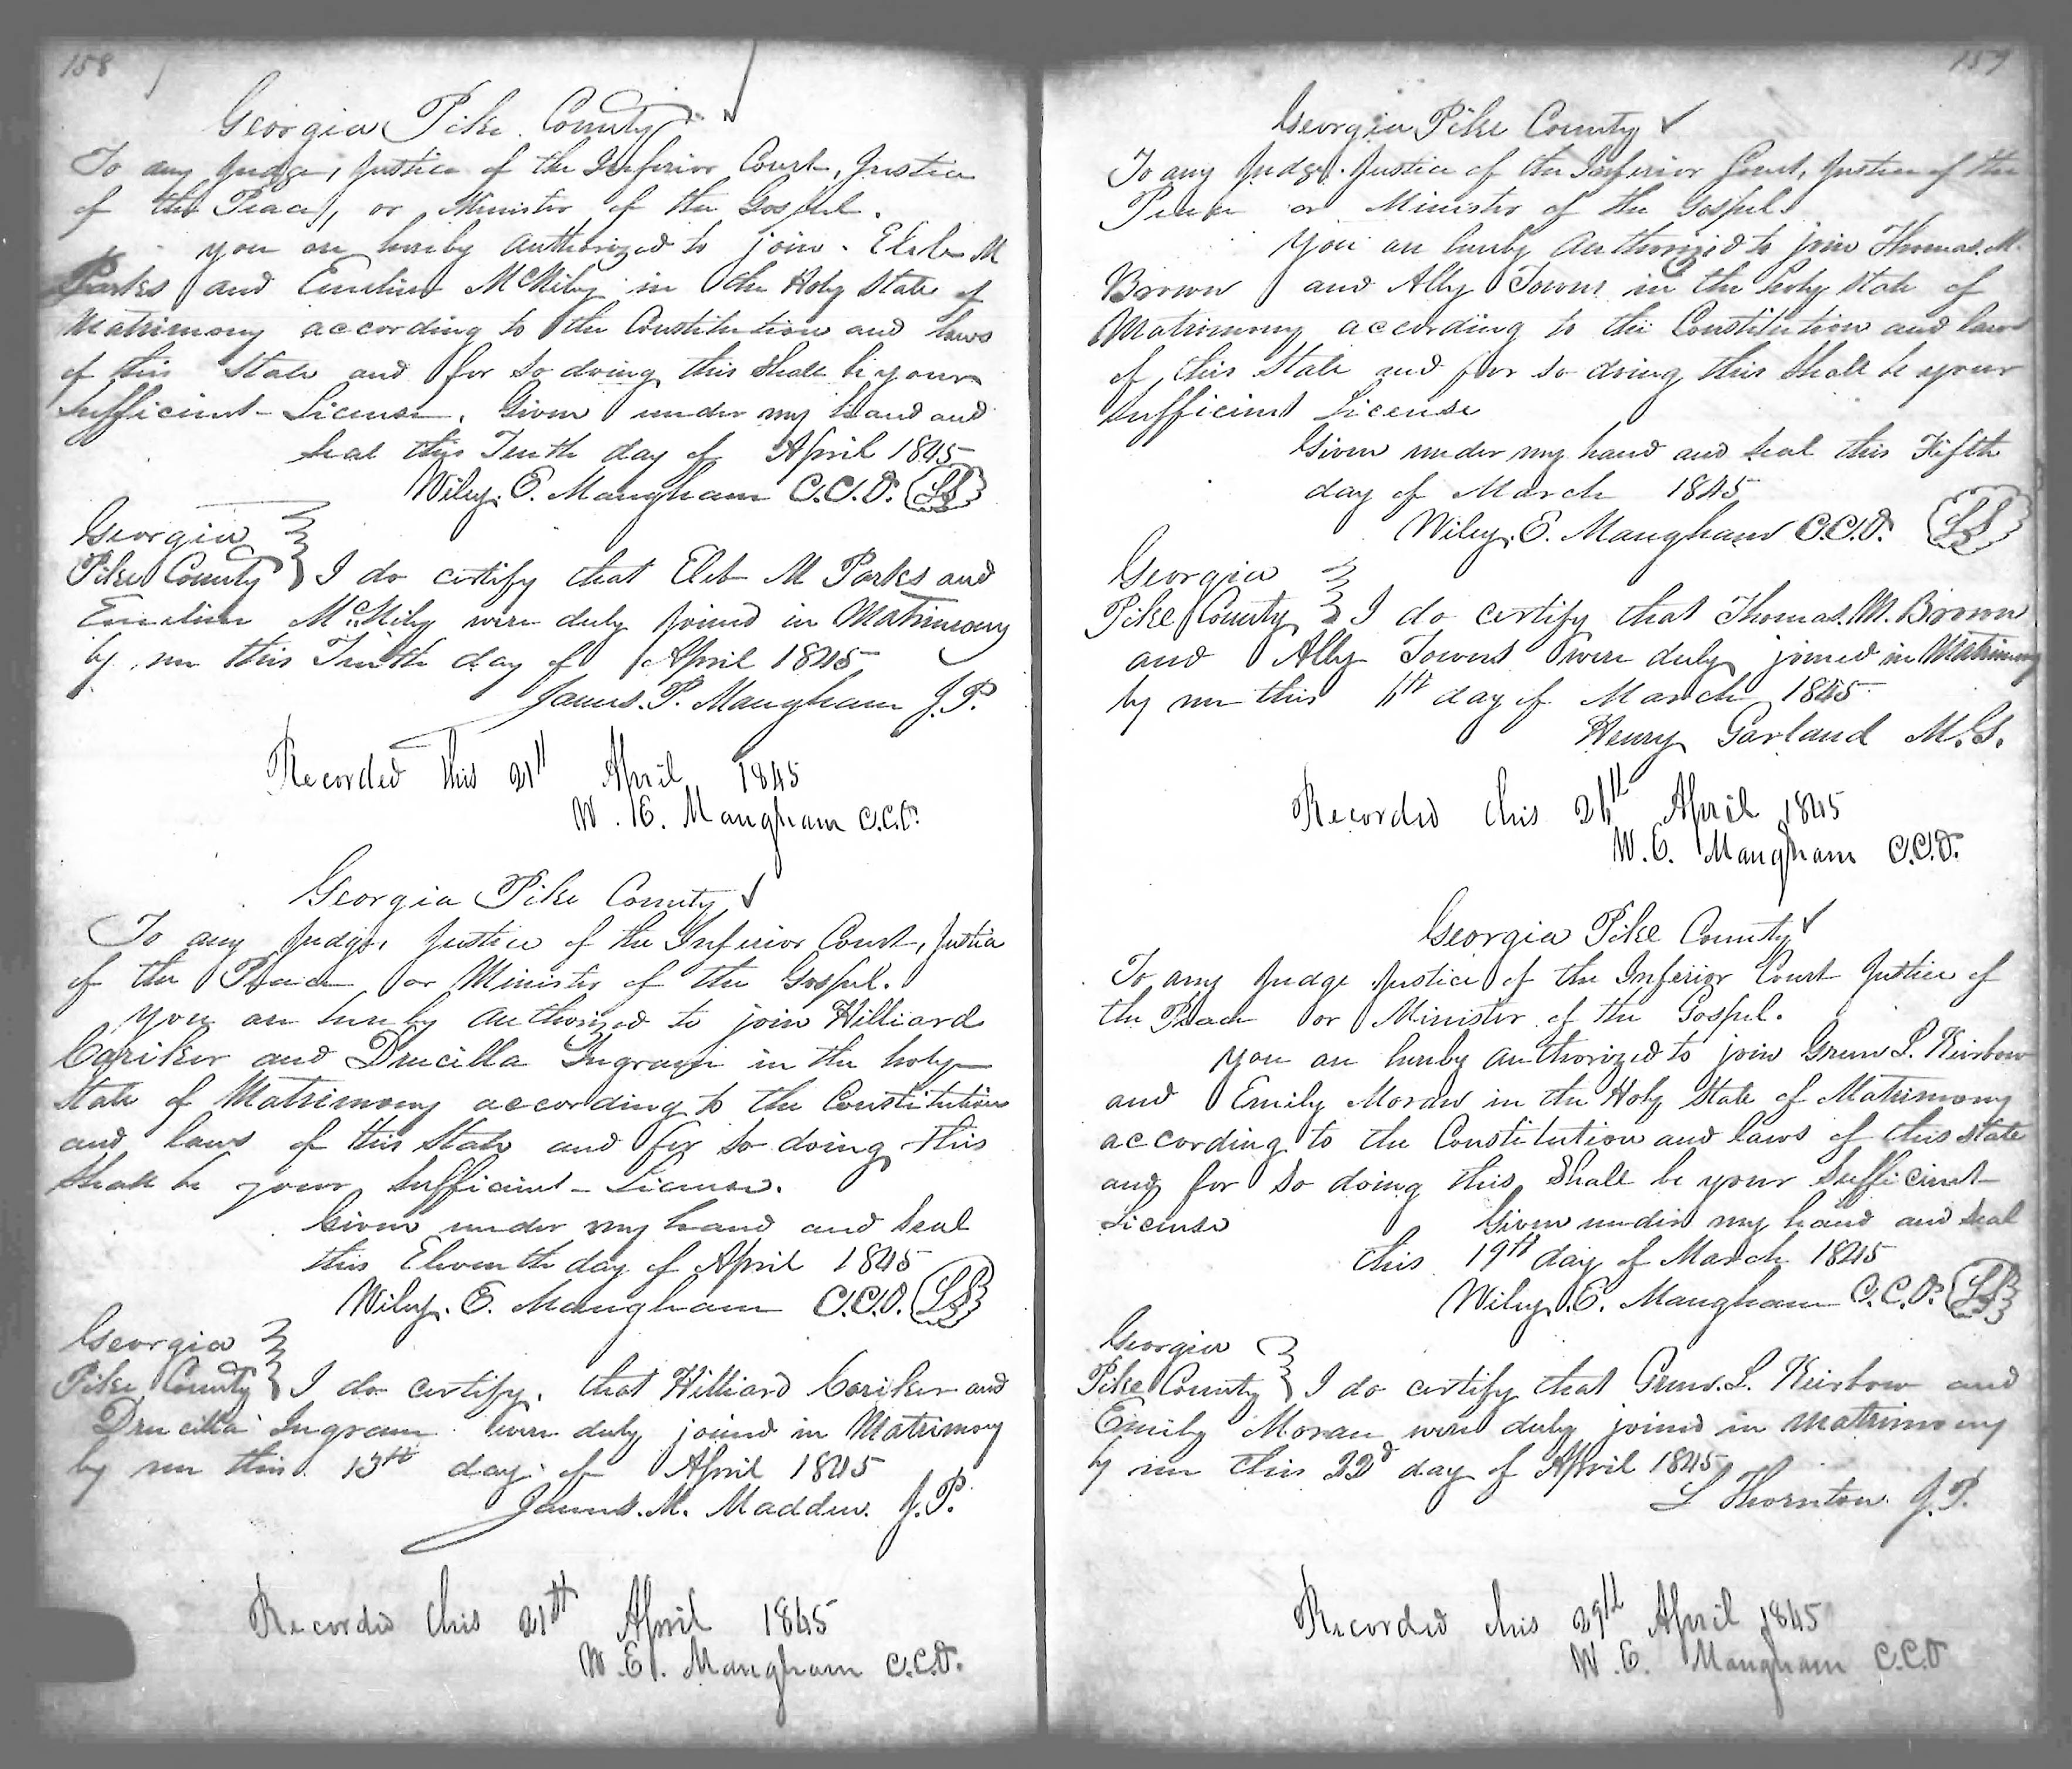 158
Georgia Pike County
To any Judge, Justice of the Inferior Court, Justice
of the Peace, or Minister of the Gospel.
you are hereby authorized to join. Eleb M
Parks and Emeline McKiby in the Holy State of
Matrimony according to the Constitution and laws
of this State and for so doing this Shall be your
Sufficient License. Given under my hand and
Seal this Tenth day of April 1845
Wiley. E. Mangham C.C.O. LS
Georgia
Pike County I do certify that Eleb M Parks and
Emeline McKiby were duly joined in Matrimony
by me this Tenth day of April 1845
James. P. Mangham J.P.
Recorded this 21st April 1845
W. E. Mangham C.C.O.
Georgia Pike County
To any Judge, Justice of the Inferior Court, Justice
of the Peace or Minister of the Gospel.
you are hereby authorized to join Hilliard
Cariker and Drucilla Ingram in the holy
State of Matrimony according to the Constitution
and laws of this State and for so doing this
Shall be your Sufficient License.
Given under my hand and Seal
this Eleventh day of April 1845
Wiley. E. Mangham C.C.O. LS
Georgia
Pike County I do certify, that Hilliard Cariker and
Drucilla Ingram were duly joined in Matrimony
by me this 13th day of April 1845
James. M. Madden. J.P.
Recorded this 21st April 1845
W. E. Mangham C.C.O.
159
Georgia Pike County
To any Judge. Justice of the Inferior Court, Justice of the
Peace or Minister of the Gospel.
You are hereby authorized to join Thomas. M.
Brown and Ally Towns in the holy State of
Matrimony according to the Constitution and laws
of this State and for so doing this Shall be your
Sufficient License
Given under my hand and Seal this Fifth
day of March 1845
Wiley. E. Mangham C.C.O. LS
Georgia
Pike County I do certify that Thomas. M. Brown
and Ally Towns were duly joined in Matrimony
by me this 6th day of March 1845
Henry Garland M.G.
Recorded this 26th April 1845
W. E. Mangham C.C.O.
Georgia Pike County
To any Judge Justice of the Inferior Court Justice of
the Peace or Minister of the Gospel.
you are hereby authorized to join Green L.
and Emily Moran in the Holy State of Matrimony
according to the Constitution and laws of this State
and for so doing this Shall be your Sufficient
License Given under my hand and Seal
this 19th day of March 1845
Wiley. E. Mangham C.C.O. LS
Georgia
Pike County I do certify that Green. L. and
Emily Moran were duly joined in Matrimony
by me this 22d day of April 1845
L Thornton J.P.
Recorded this 29th April 1845
W. E. Mangham C.C.O